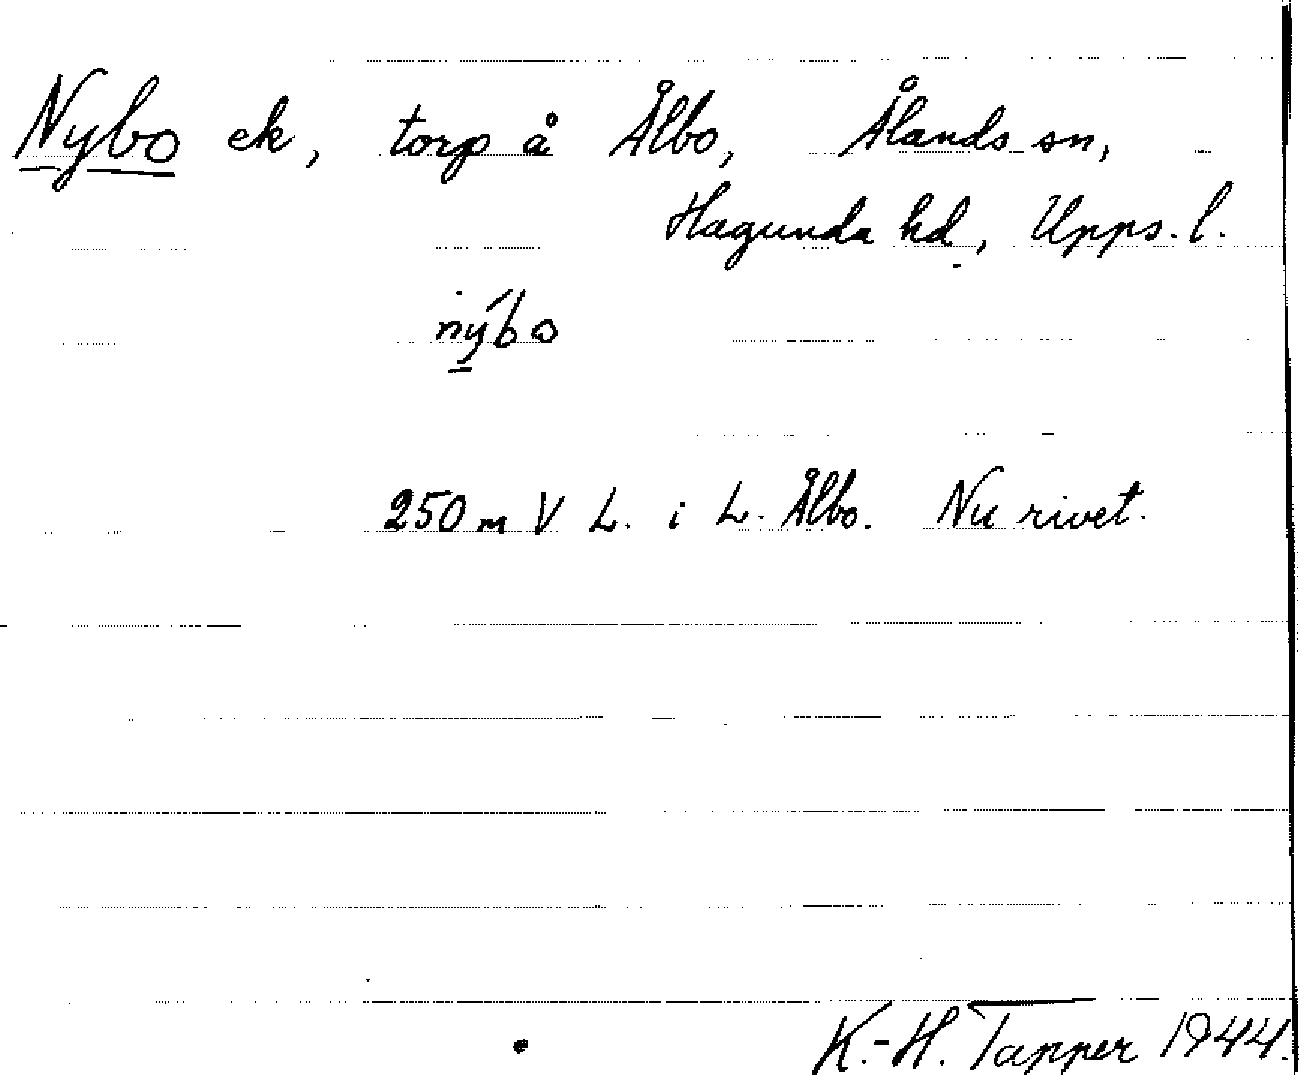 Nybo ek, torp å Ålbo, Ålands sn,
Hagunda hd, Upps. l.
nýbo
250 m V L. i L. Ålbo. Nu rivet.
K.-H. Tapper 1944.